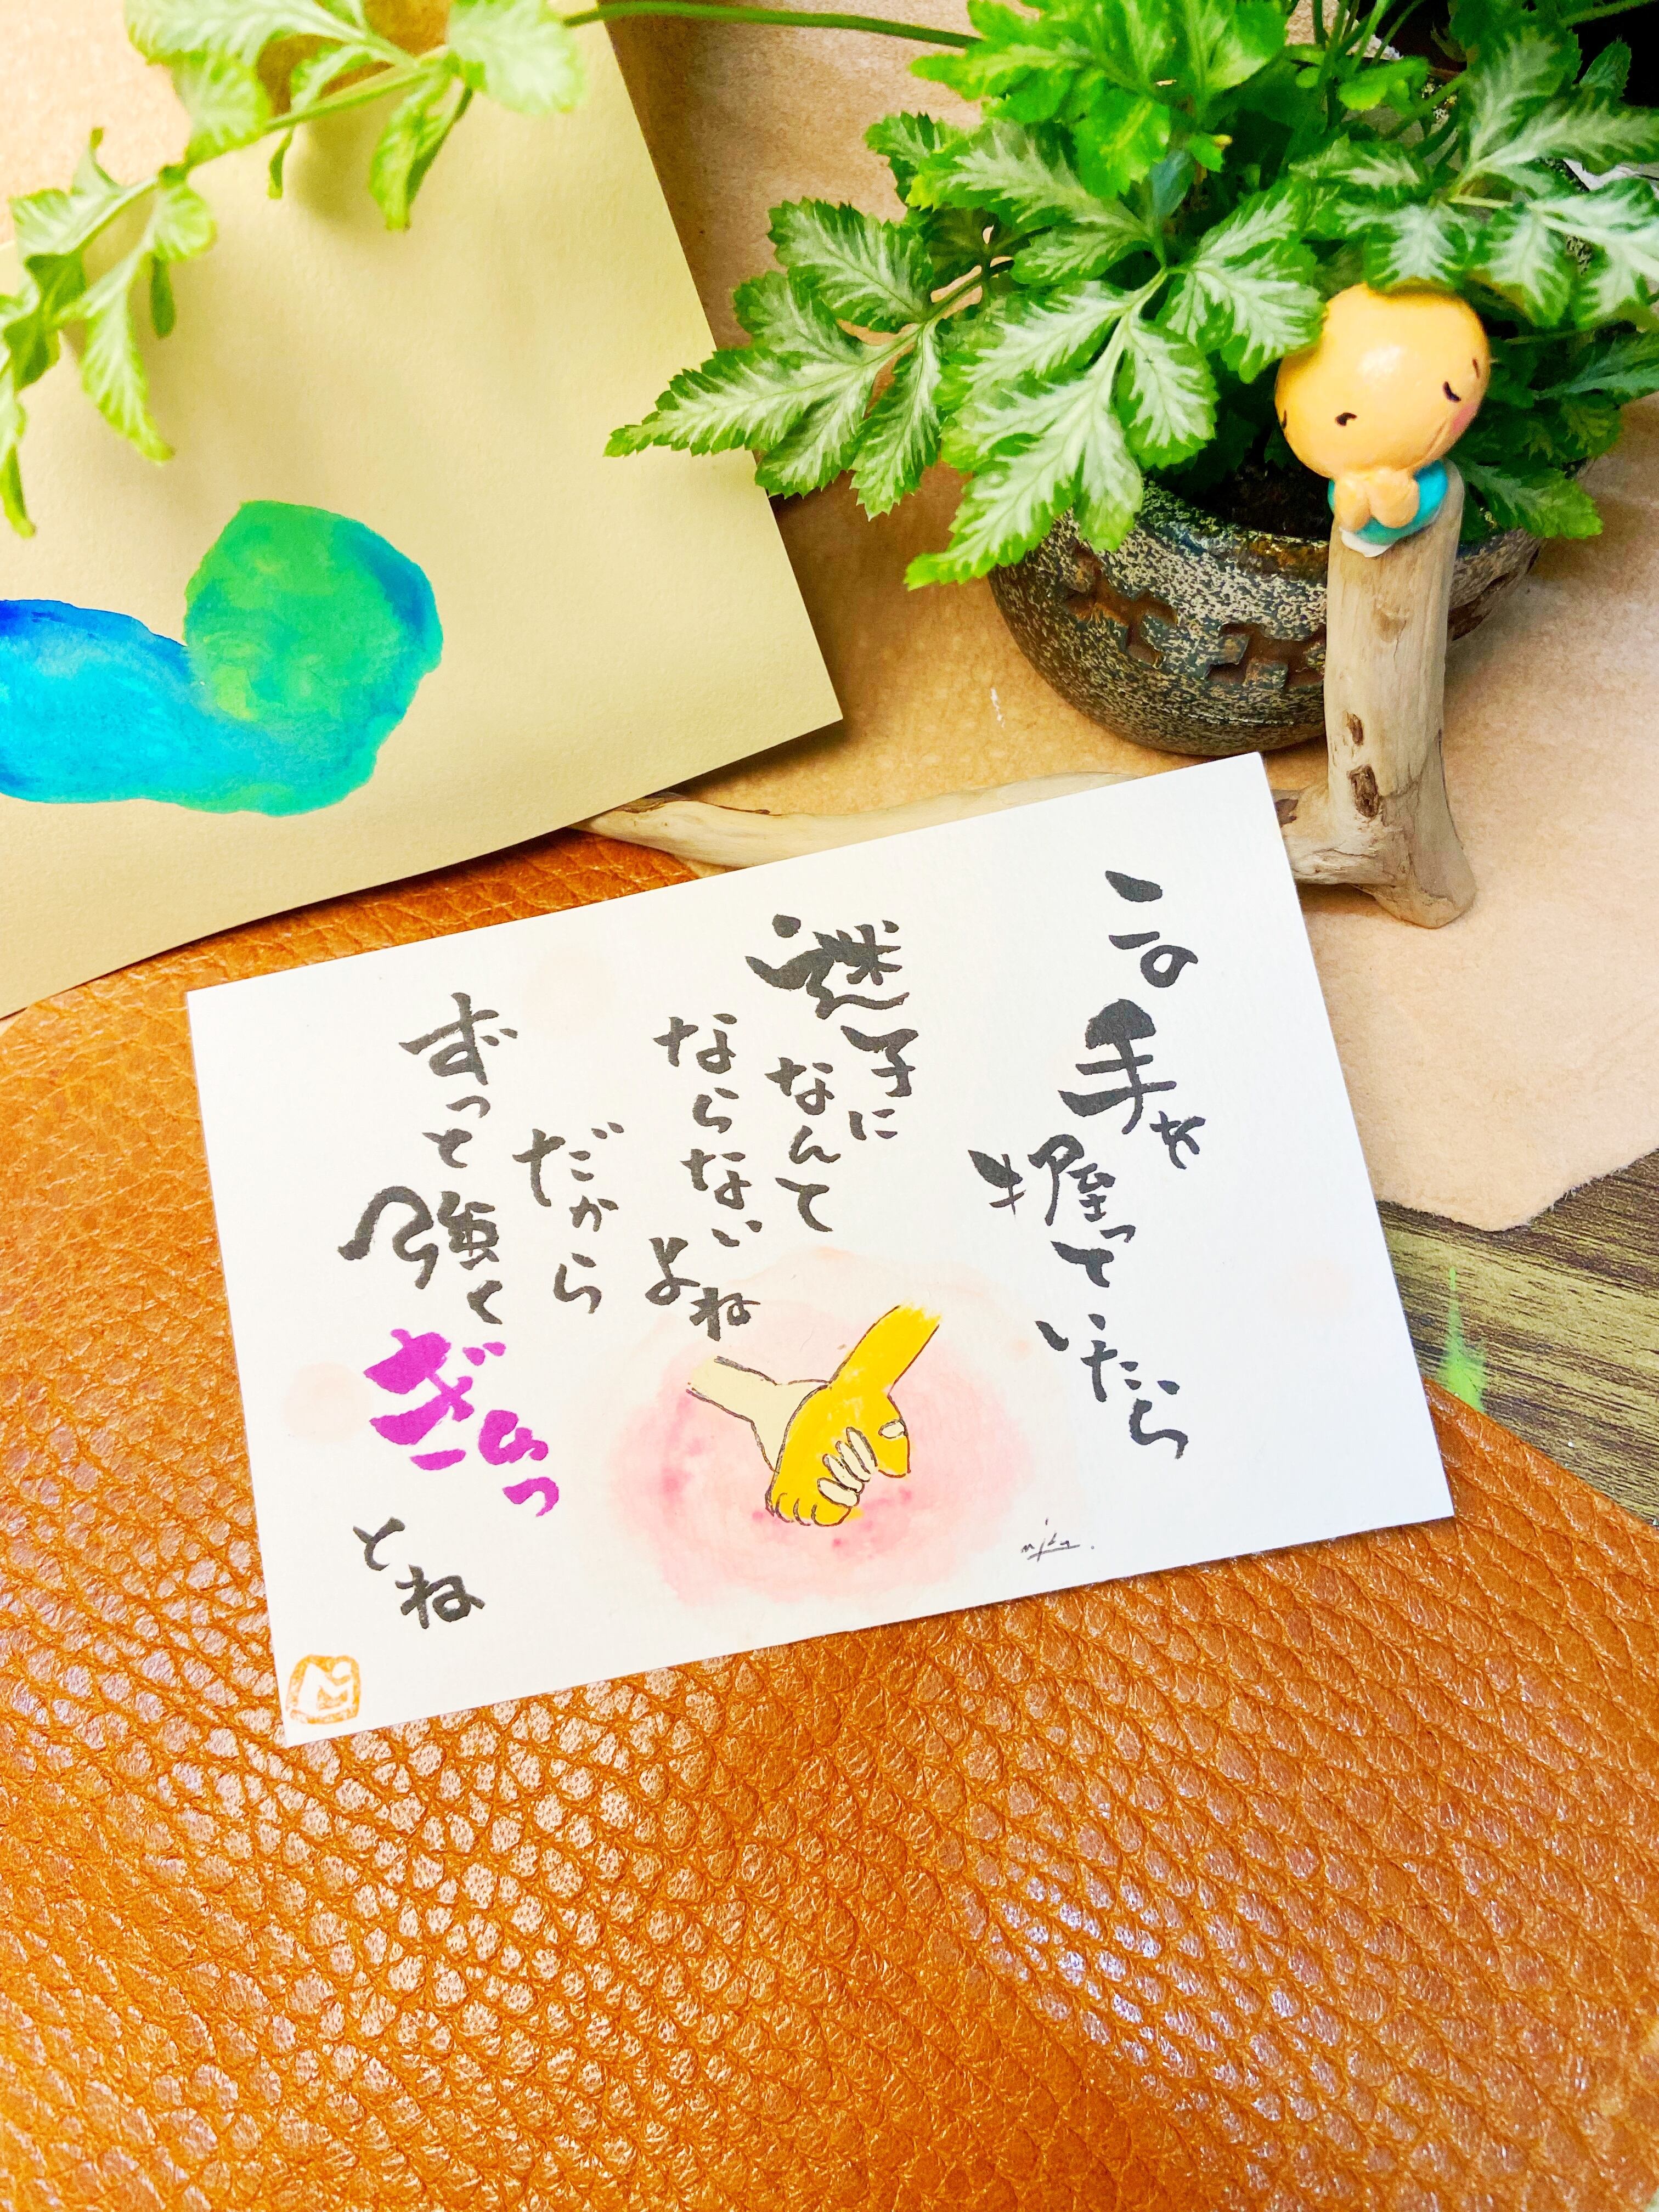 この手を
握っていたら
迷子に
なんて
ならない
よね
だから
ずって強く
ぎゅっ
とね